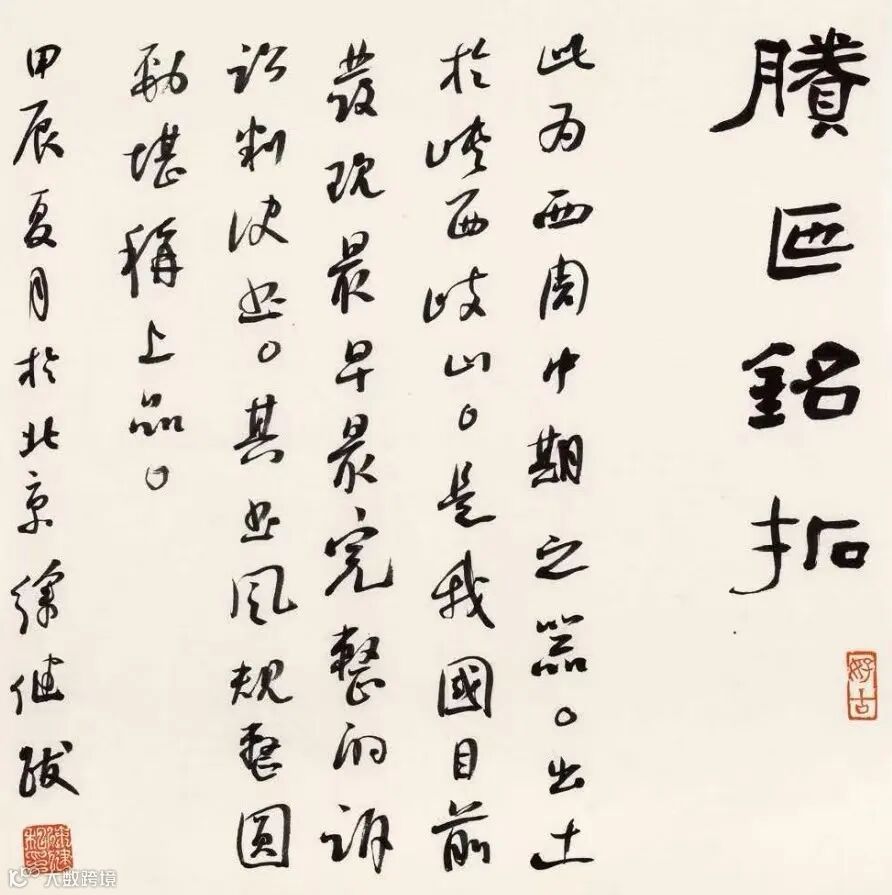 賸匜銘拓
此为西周中期之器。出土
於陕西岐山。是我國目前
發现最早最完整的訴
訟判决书。其书风规整圓
勁堪稱上品。
甲辰夏月於北京徐健跋
好古
大数跨境